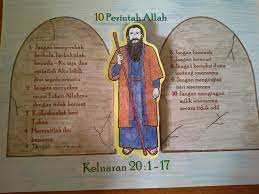 10 Perintah Allah
1. Jangan menyembah
berhala, berbaktilah
kepada-Ku saja, dan
cintailah Aku lebih
dari segala sesuatu
2. Jangan menyebut
nama Tuhan Allahmu
dengan tidak hormat
3. Kuduskanlah hari
Tuhan
4. Hormatilah ibu
bapamu
5. Jangan
6. Jangan berzinah
7. Jangan mencuri
8. Jangan bersaksi dusta
tentang sesamamu
9. Jangan mengingini
istri sesamamu
10. Jangan mengingini
milik sesamamu
secara tidak adil
Keluaran 20:1-17